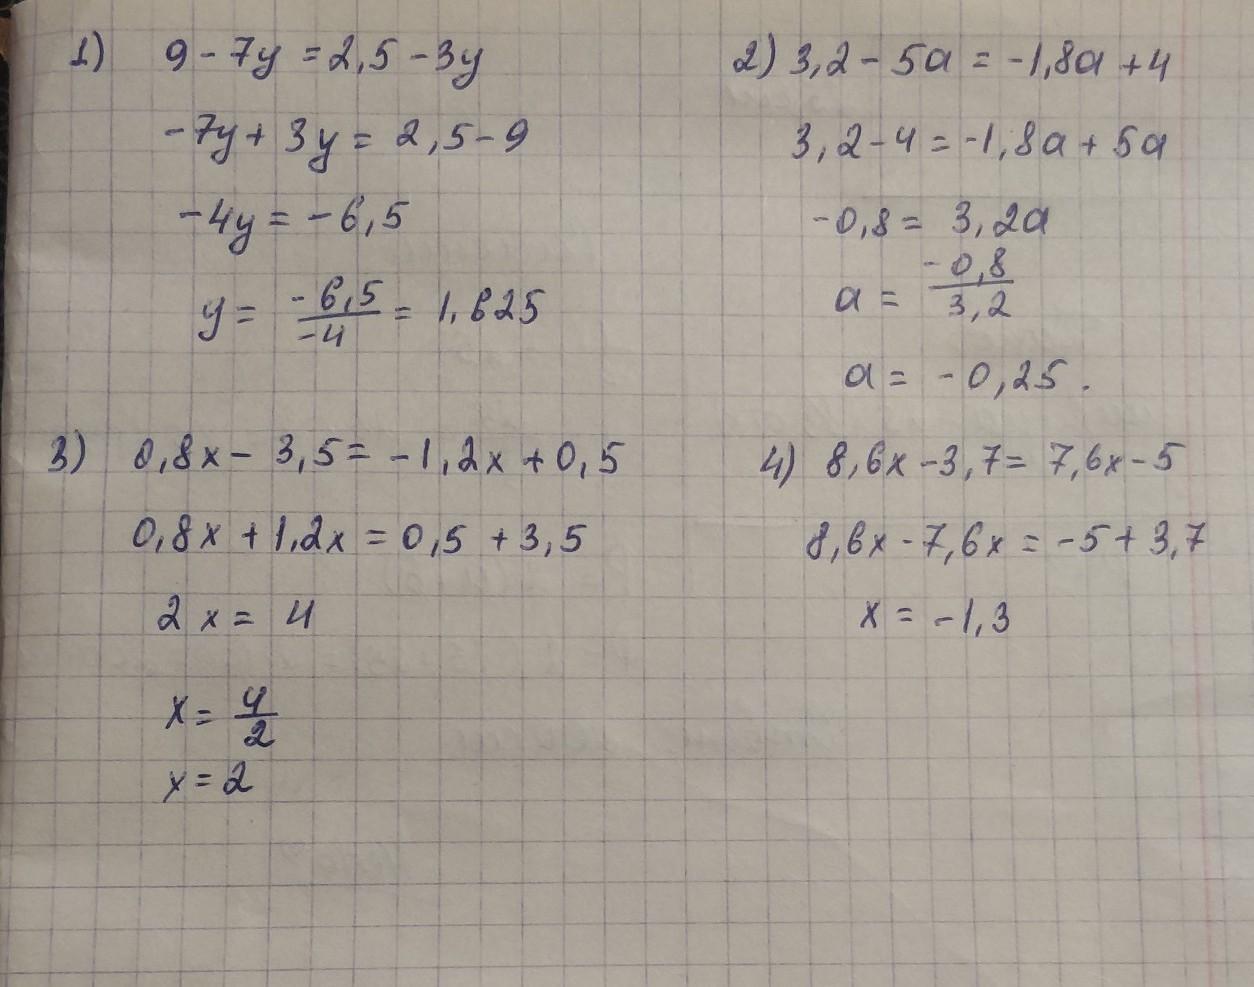 1) 9 - 7y = 2,5 - 3y
-7y + 3y = 2,5 - 9
-4y = -6,5
y = -6,5/-4 = 1,625
2) 3,2 - 5a = -1,8a + 4
3,2 - 4 = -1,8a + 5a
-0,8 = 3,2a
a = -0,8/3,2
a = -0,25.
3) 0,8x - 3,5 = -1,2x + 0,5
0,8x + 1,2x = 0,5 + 3,5
2x = 4
x = 4/2
x = 2
4) 8,6x - 3,7 = 7,6x - 5
8,6x - 7,6x = -5 + 3,7
x = -1,3